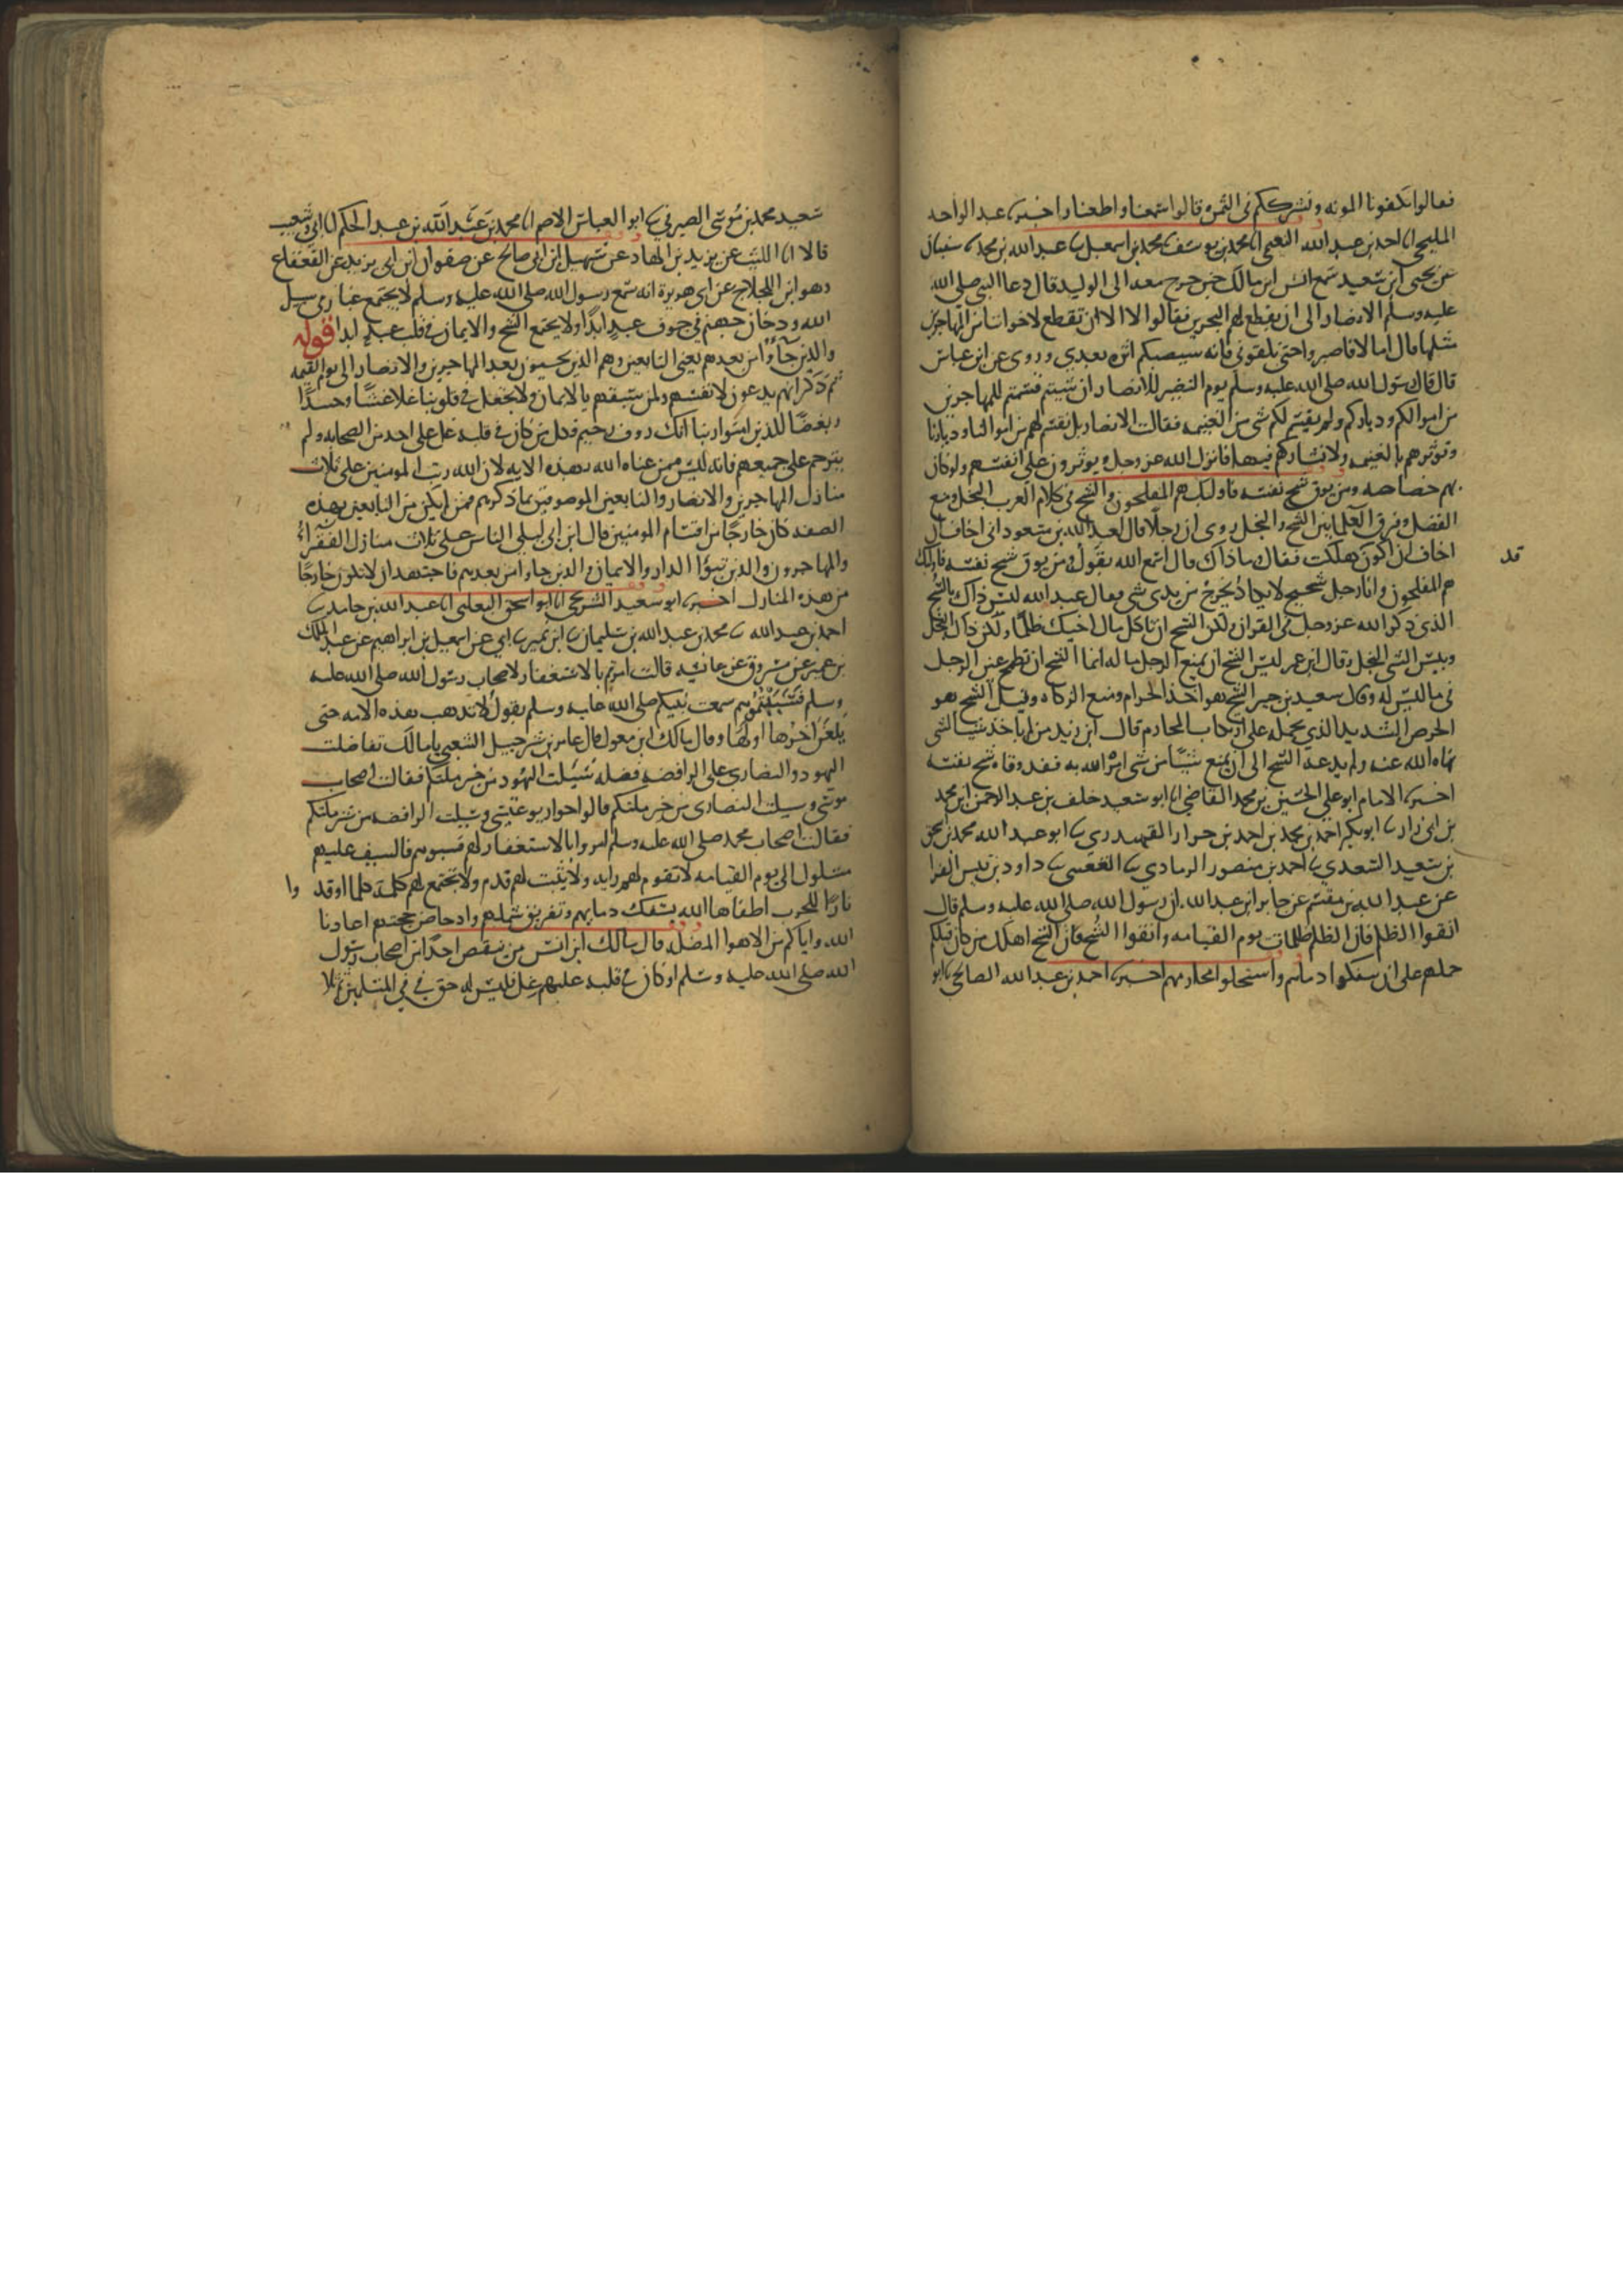 فقالوا تكفونا المونه ونشرككم فى الثمره قالوا سمعنا واطعنا واخبرنا عبد الواحد
المليحى انا احمد بن عبد الله النعيمى انا محمد بن يوسف ثنا محمد بن اسمعيل ثنا عبد الله بن محمد ثنا سفيان
عن يحيى ابن سعيد سمع انس ابن مالك حين خرج معه الى الوليد قال دعا النبي صلى الله
عليه وسلم الانصار الى ان يقطع لهم البحرين فقالوا لا الا ان تقطع لاخواننا من المهاجرين
مثلها قال اما لا فاصبروا حتى تلقونى فانه سيصيبكم اثره بعدي وروى عن ابن عباس
قال قال رسول الله صلى الله عليه وسلم يوم النضير للانصار ان شيتم قسمتم للمهاجرين
من اموالكم ودياركم ولم يقسم لكم شى من الغنيمه فقالت الانصار بل نقسم لهم من اموالنا وديارنا
ونوثرهم بالغنيمه ولا نشاركهم فيها فانزل الله عز وجل ويوثرون على انفسهم ولو كان
بهم خصاصه ومن يوق شح نفسه فاوليك هم المفلحون والشح فى كلام العرب البخل ومنع
الفضل وفرق العلما بين الشح والبخل روى ان رجلا قال لعبد الله بن مسعود انى اخاف ان
اخاف ان اكون هلكت فقال وما ذاك قال اسمع الله يقول ومن يوق شح نفسه فاوليك
قد
هم المفلحون وانا رجل شحيح لا يكاد يخرج من يدى شى فقال عبد الله ليس ذاك بالشح
الذى ذكر الله عز وجل فى القران ولكن الشح ان تاكل مال اخيك ظلما ولكن ذاك البخل
وبيس الشى البخل وقال ابن عمر ليس الشح ان يمنع الرجل ماله انما الشح ان تطمح عين الرجل
فى ما ليس له وقال سعيد بن جبير الشح هو اخذ الحرام ومنع الزكاه وقيل الشح هو
الحرص الشديد الذي يحمله على ارتكاب المحارم قال ابن زيد من لم ياخذ شيا لشى
نهاه الله عنه ولم يدعه الشح الى ان يمنع شيئا من شى امره الله به فقد وقاه شح نفسه
اخبرنا الامام ابو على الحسين بن محمد القاضي انا ابو سعيد خلف بن عبد الرحمن ابن محمد
بن ابى نزار ثنا ابو بكر احمد بن محمد بن احمد بن حرار القهندري ثنا ابو عبد الله محمد بن اسحق
بن سعيد السعدي ثنا احمد بن منصور الرمادي ثنا القعنبى ثنا داود بن قيس الفرا
عن عبيد الله بن مقسم عن جابر ابن عبد الله ان رسول الله صلى الله عليه وسلم قال
اتقوا الظلم فان الظلم ظلمات يوم القيامه واتقوا الشح فان الشح اهلك من كان قبلكم
حملهم على ان سفكوا دماءهم واستحلوا محارمهم اخبرنا احمد بن عبد الله الصالحى ثنا ابو
سعيد محمد بن موسى الصيرفى ثنا ابو العباس الاصم انا محمد بن عبد الله بن عبد الحكم انا ابى وشعيب
قالا انا الليث عن يزيد بن الهاد عن سهيل ابن ابى صالح عن صفوان ابن ابى يزيد عن القعقاع
وهو ابن اللجلاج عن ابى هريرة انه سمع رسول الله صلى الله عليه وسلم لا يجتمع غبار فى سبيل
الله ودخان جهنم فى جوف عبد ابدا ولا يجتمع الشح والايمان فى قلب عبد ابدا قوله
والذين جاوا من بعدهم يعنى التابعين وهم الذين يجيون بعد المهاجرين والانصار الى يوم القيمه
ثم ذكر انهم يدعون لانفسهم ولمن سبقهم بالايمان ولا تجعل فى قلوبنا غلا غشا وحسدا
وبغضا للذين امنوا ربنا انك روف رحيم فكل من كان فى قلبه غل على احد من الصحابه ولم
يترحم على جميعهم فانه ليس ممن عناه الله بهذه الايه لان الله رتب المومنين على ثلاث
منازل المهاجرين والانصار والتابعين الموصوفين بما ذكرهم فمن لم يكن من التابعين بهذه
الصفه كان خارجا من اقسام المومنين قال ابن ابى ليلى الناس على ثلاث منازل الفقراء
والمهاجرون والذين تبوؤا الدار والايمان والذين جاوا من بعدهم فاجتهد ان لا تكون خارجا
من هذه المنازل اخبرنا ابو سعيد الشريحى انا ابو اسحق الثعلبى انا عبد الله بن حامد ثنا
احمد بن عبد الله ثنا محمد بن عبد الله بن سليمان ثنا ابن نمير ثنا ابي عن اسمعيل بن ابراهيم عن عبد الملك
بن عمير عن مسروق عن عائشه قالت امرتم بالاستغفار لاصحاب رسول الله صلى الله عليه
وسلم فسببتموهم سمعت نبيكم صلى الله عليه وسلم يقول لا تذهب هذه الامه حتى
يلعن اخرها اولها وقال مالك ابن مغول قال عامر بن شرحبيل الشعبى يا مالك تفاضلت
اليهود والنصارى على الرافضه فضله سيلت اليهود من خير ملتكم فقالت اصحاب
موسى وسيلت النصارى من خير ملتكم قالوا حواريو عيسى وسيلت الرافضه من شر ملتكم
فقالت اصحاب محمد صلى الله عليه وسلم امروا بالاستغفار لهم فسبوهم فالسيف عليهم
مسلول الى يوم القيامه لا تقوم لهم رايه ولا يثبت لهم قدم ولا تجتمع لهم كلمة كلما اوقدوا
نارا للحرب اطفاها الله بسفك دمايهم وتفريق شملهم وادحاض حجتهم اعاذنا
الله واياكم من الاهوا المضله قال مالك ابن انس من ينقص احدا من اصحاب رسول
الله صلى الله عليه وسلم او كان فى قلبه عليهم غل فليس له حق فى فى المسلمين ثم تلا